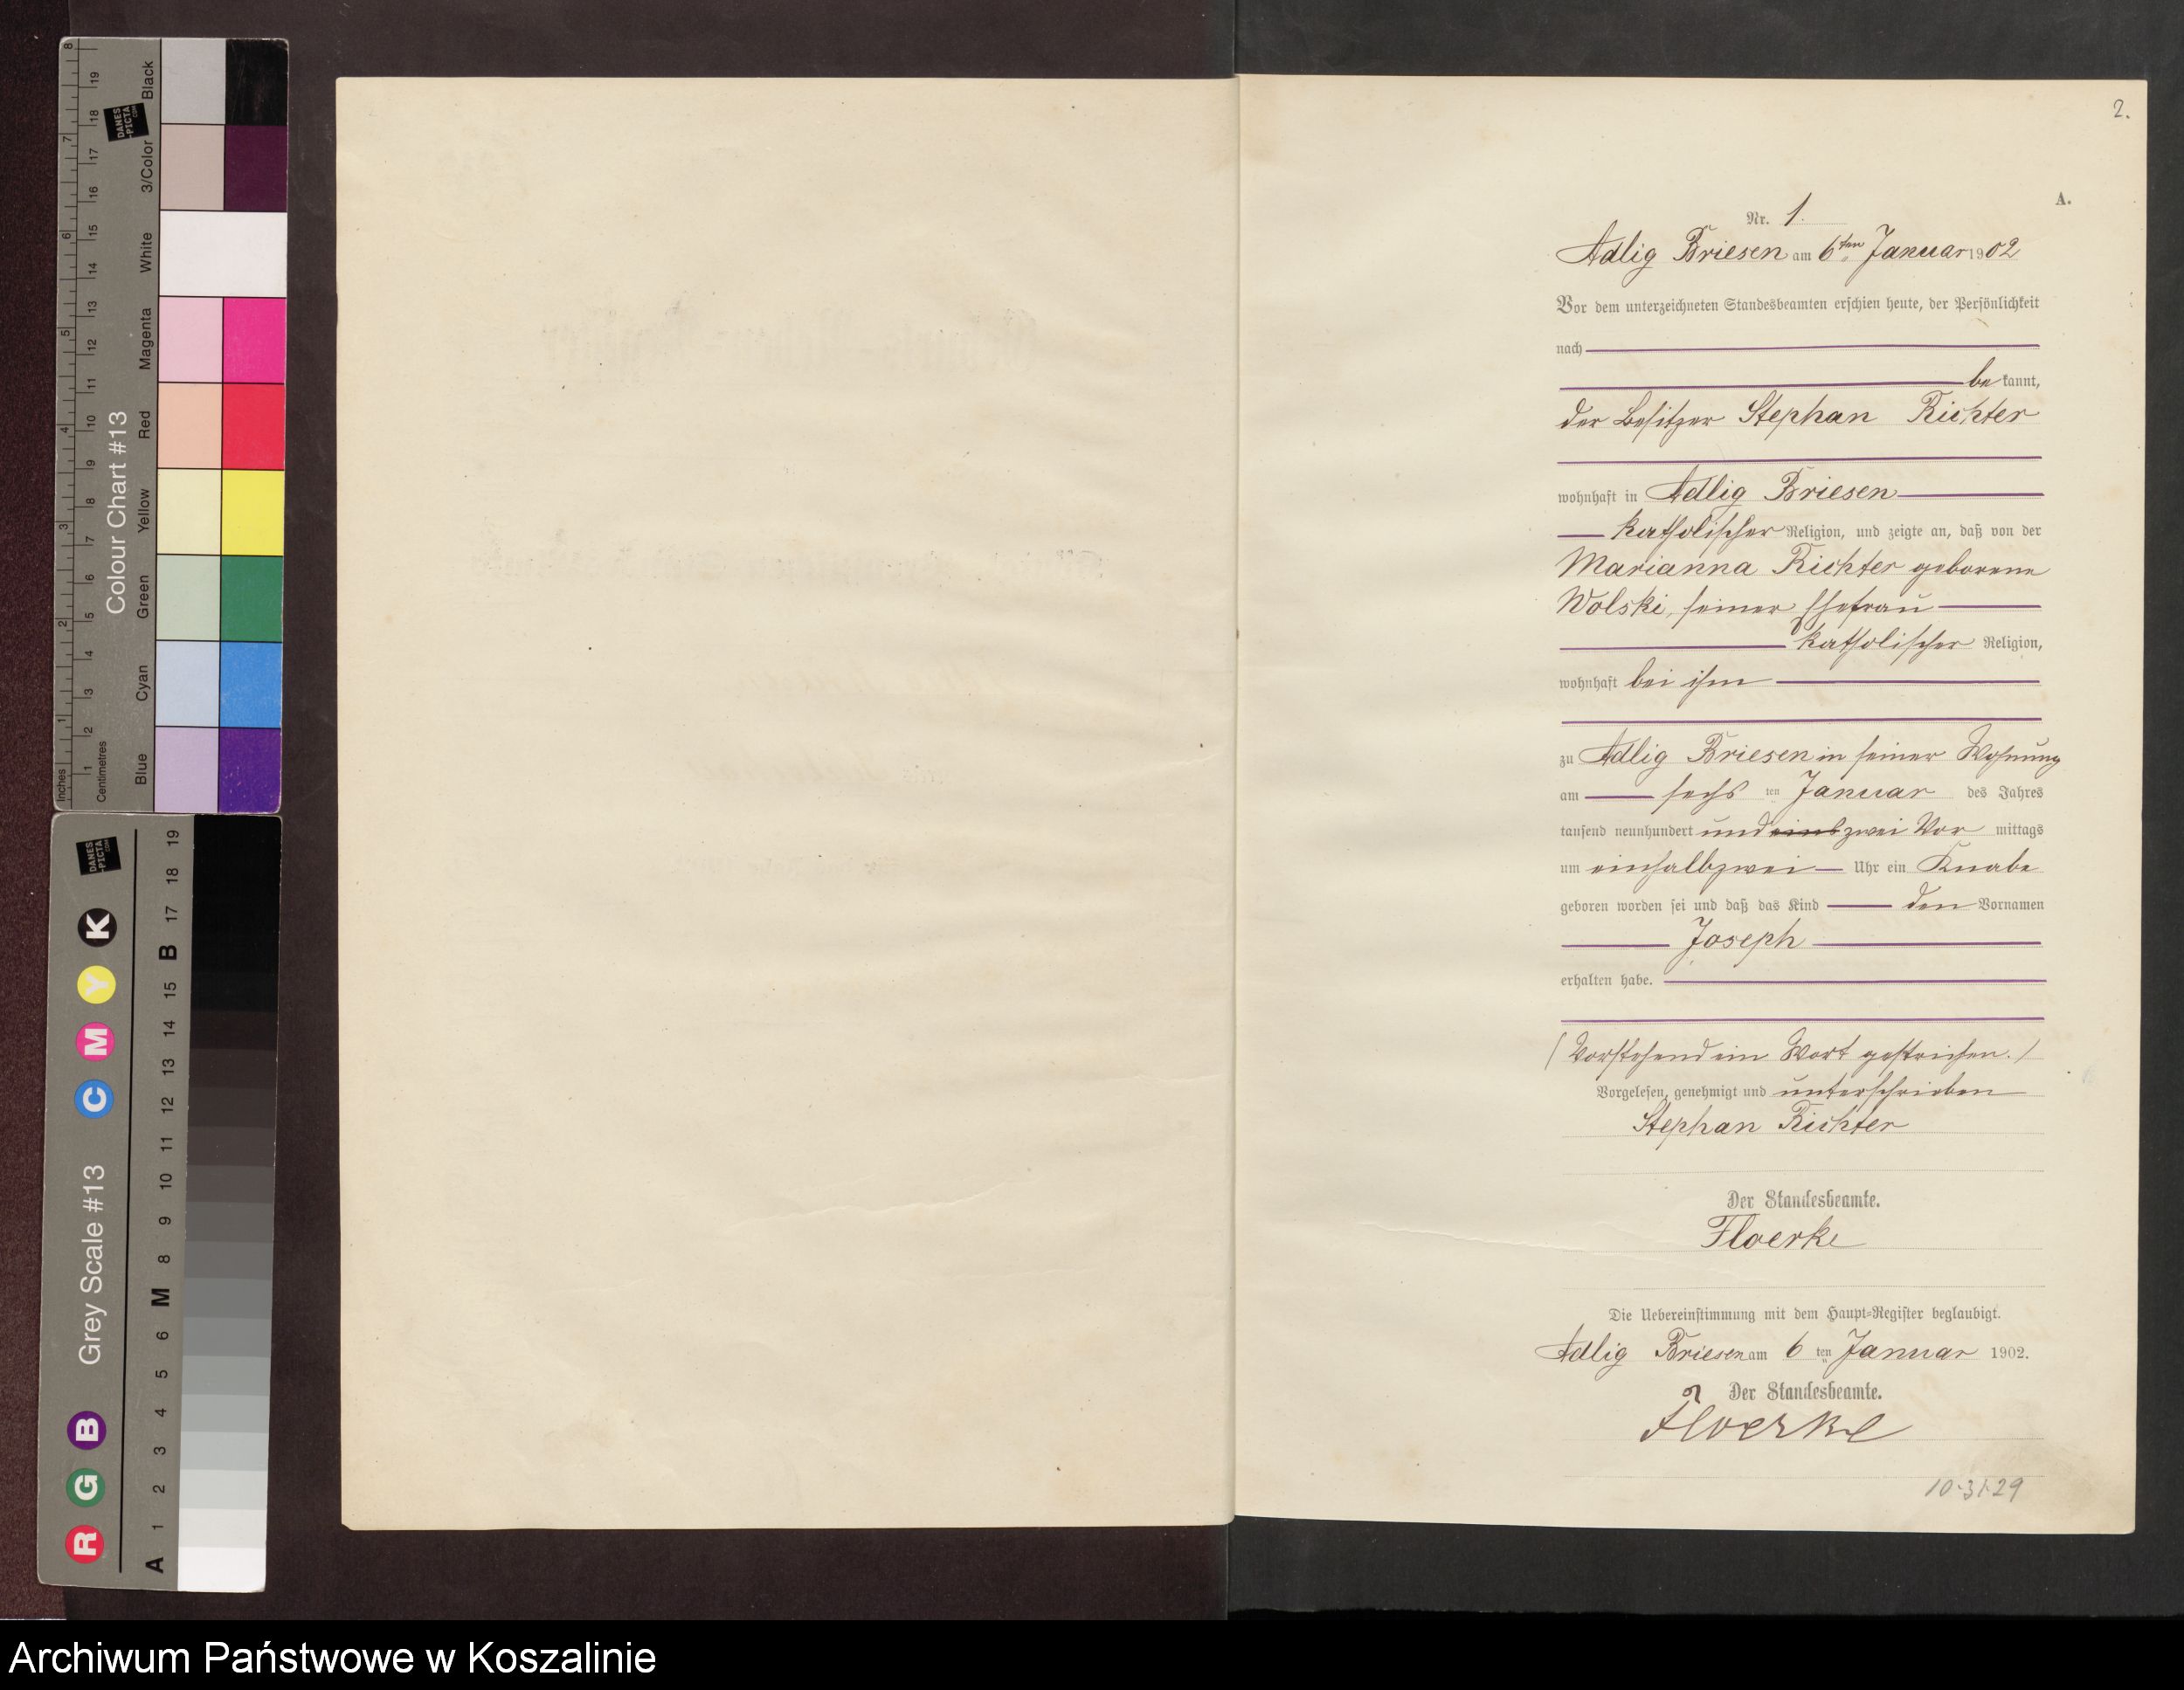 2.
A.
Nr. 1.
Adlig Briesen am 6ten Januar 1902
Vor dem unterzeichneten Standesbeamten erschien heute, der Persönlichkeit
nach
be kannt,
der Besitzer Stephan Richter
wohnhaft in Adlig Briesen
katholischer Religion, und zeigte an, daß von der
Marianna Richter geborene
Wolski, seiner Ehefrau
katholischer Religion,
wohnhaft bei ihm
zu Adlig Briesen in seiner Wohnung
am sechs ten Januar des Jahres
tausend neunhundert und eins zwei Vor mittags
um einhalbzwei Uhr ein Knabe
geboren worden sei und daß das Kind den Vornamen
Joseph
erhalten habe.
(Vorstehend ein Wort gestrichen.)
Vorgelesen, genehmigt und unterschrieben
Stephan Richter
Der Standesbeamte.
Floerke
Die Uebereinstimmung mit dem Haupt=Register beglaubigt.
Adlig Briesen am 6 ten Januar 1902.
Der Standesbeamte.
Floerke
10-31-29
Colour Chart #13
Black
3/Color
White
Magenta
Red
Yellow
Green
Cyan
Blue
Inches 1 2 3 4 5 6 7 8
Centimetres 1 2 3 4 5 6 7 8 9 10 11 12 13 14 15 16 17 18 19
DANES
-PICTA
.COM
Grey Scale #13
R G B C M Y K
A 1 2 3 4 5 6 M 8 9 10 11 12 13 14 15 B 17 18 19
DANES
-PICTA
.COM
Archiwum Państwowe w Koszalinie